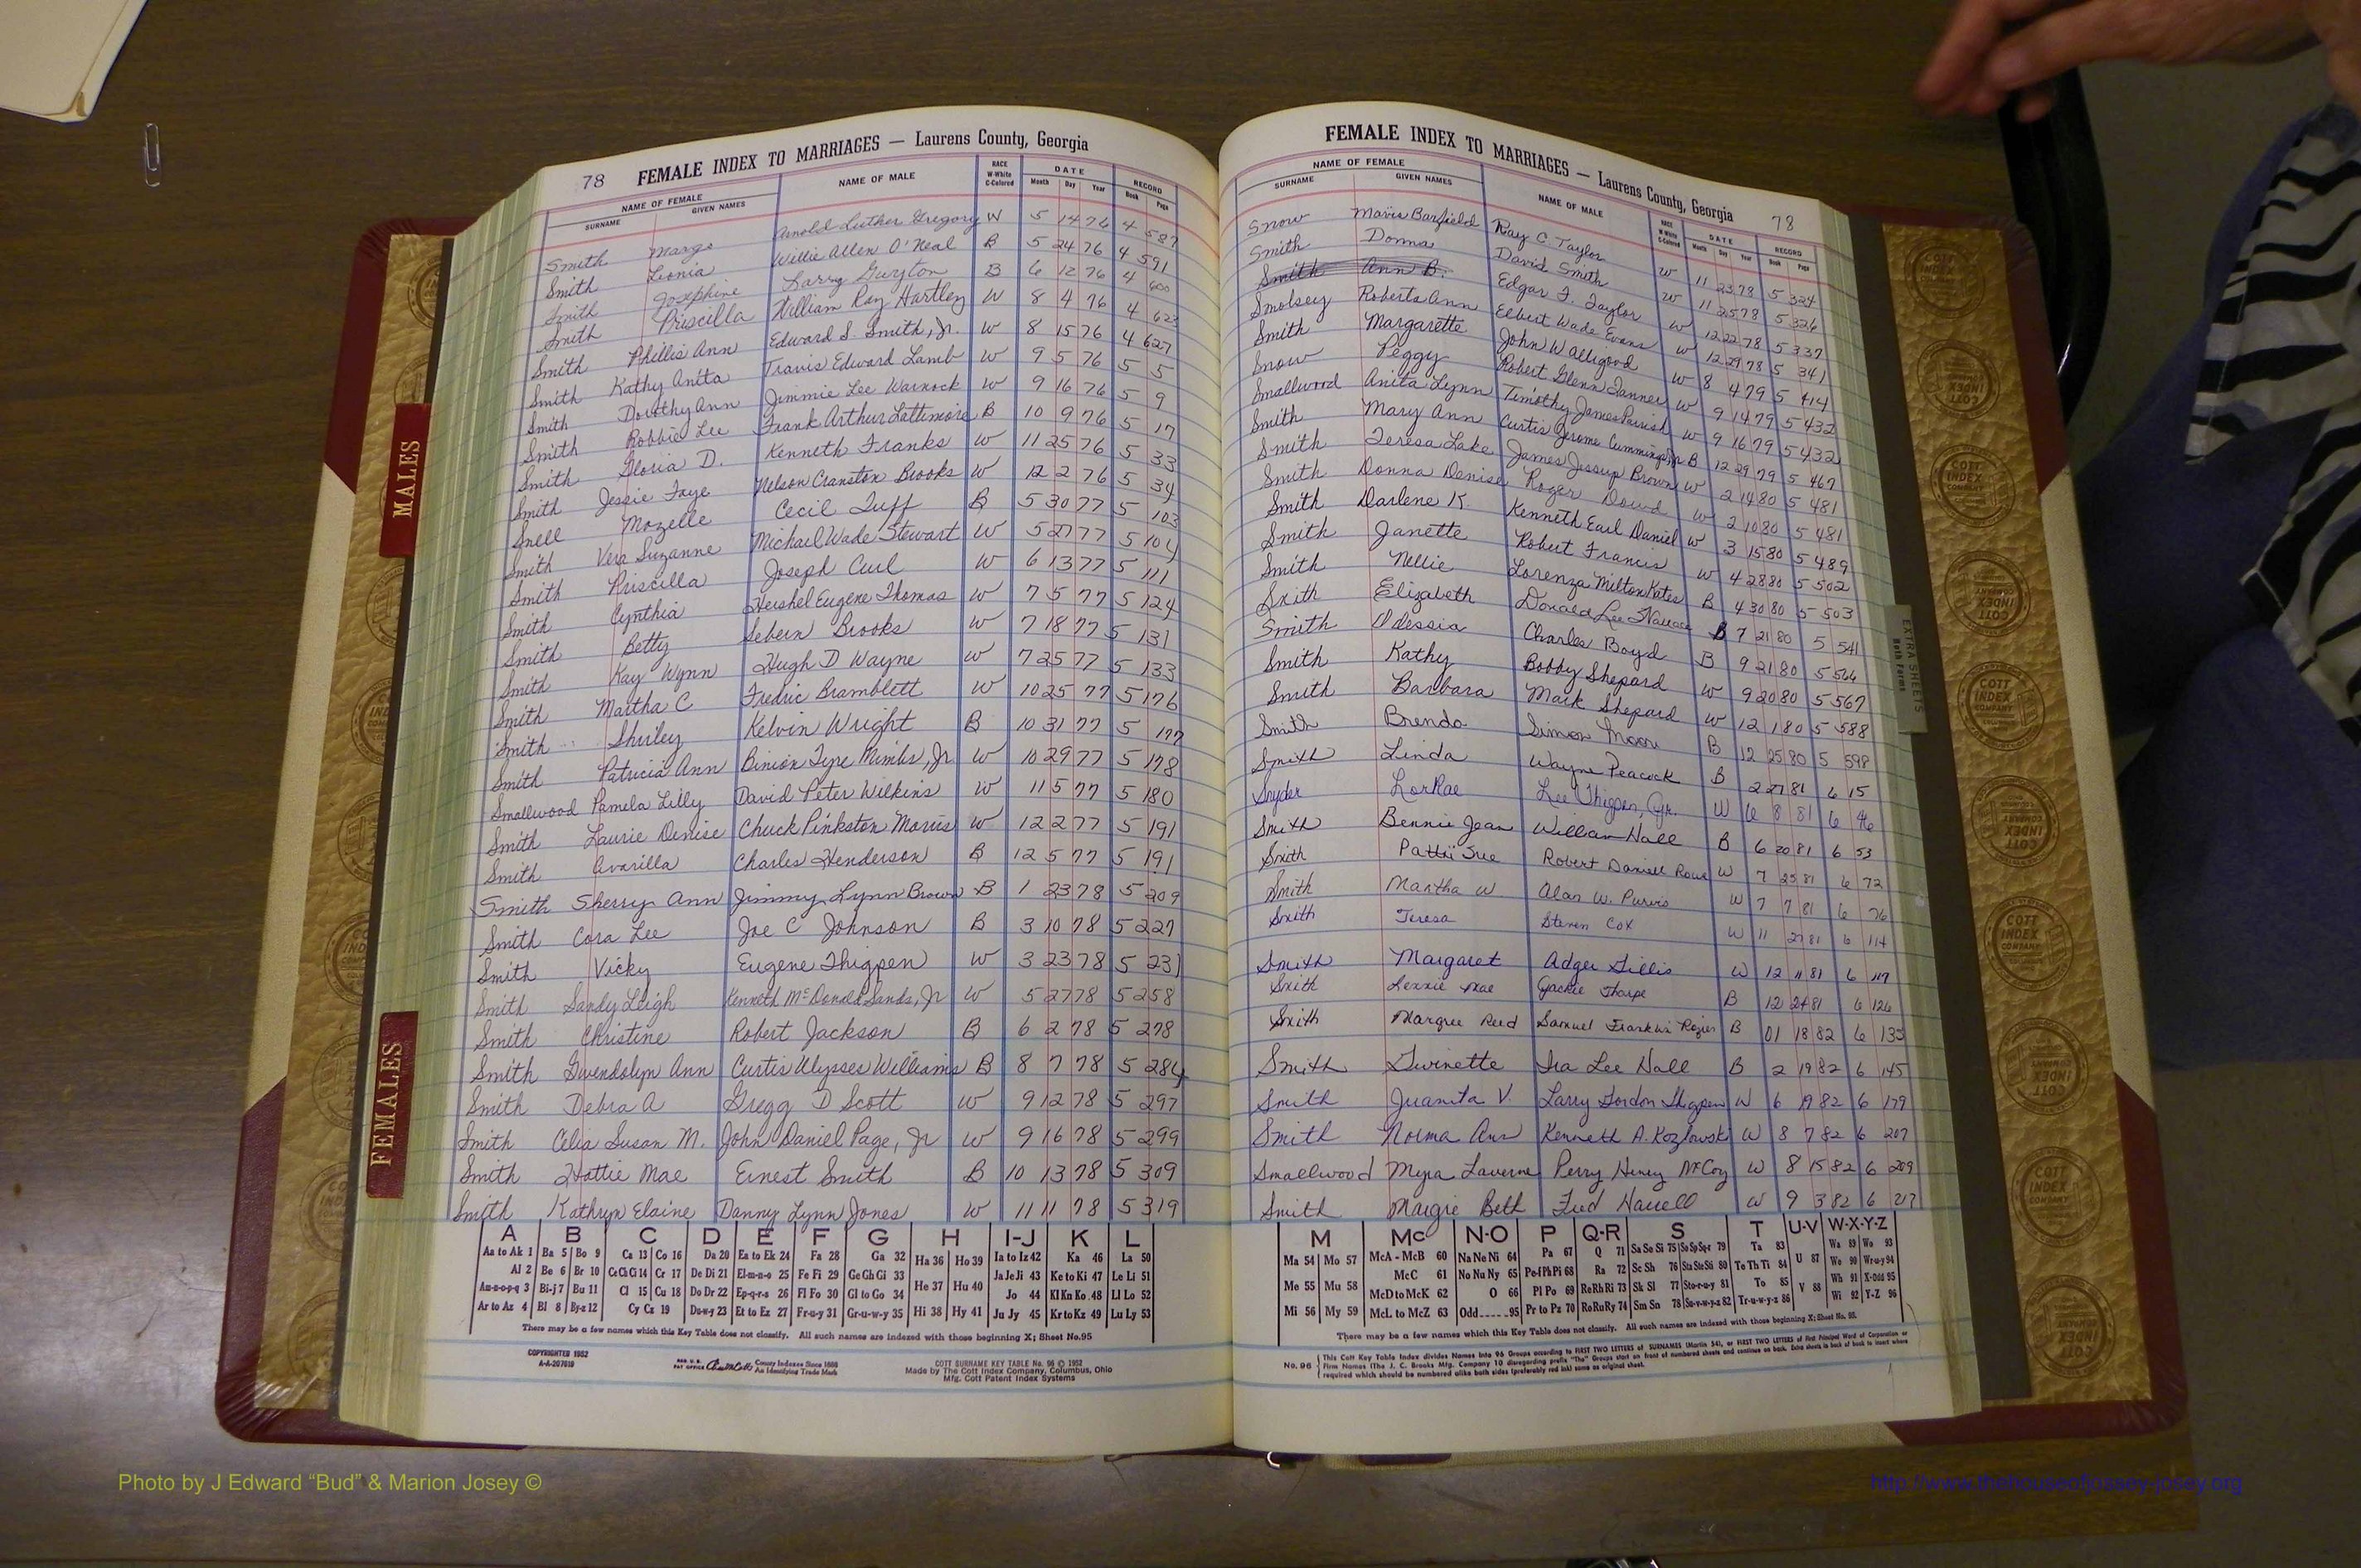 78 FEMALE INDEX TO MARRIAGES — Laurens County, Georgia
NAME OF FEMALE NAME OF MALE RACE W-White C-Colored DATE RECORD
SURNAME GIVEN NAMES Month Day Year Book Page
Smith Margo Arnold Luther Gregory W 5 14 76 4 587
Smith Leonia Willie Allen O'Neal B 5 24 76 4 591
Smith Josephine Larry Guyton B 6 12 76 4 600
Smith Priscilla William Ray Hartley W 8 4 76 4 623
Smith Phillis Ann Edward S. Smith, Jr. W 8 15 76 4 627
Smith Kathy Anita Travis Edward Lamb W 9 5 76 5 5
Smith Dorothy Ann Jimmie Lee Warnock W 9 16 76 5 9
Smith Robbie Lee Frank Arthur Lattimore B 10 9 76 5 17
Smith Gloria D. Kenneth Franks W 11 25 76 5 33
Smith Jessie Faye Nelson Cranston Brooks W 12 2 76 5 34
Snell Mozelle Cecil Tuff B 5 30 77 5 103
Smith Vera Suzanne Michael Wade Stewart W 5 27 77 5 104
Smith Priscilla Joseph Curl W 6 13 77 5 111
Smith Cynthia Hershel Eugene Thomas W 7 5 77 5 124
Smith Betty Sebern Brooks W 7 18 77 5 131
Smith Kay Wynn Hugh D Wayne W 7 25 77 5 133
Smith Martha C Fredric Bramblett W 10 25 77 5 176
Smith Shirley Kelvin Wright B 10 31 77 5 177
Smith Patricia Ann Binion Tyre Mimbs, Jr W 10 29 77 5 178
Smallwood Pamela Lilly David Peter Wilkins W 11 5 77 5 180
Smith Laurie Denise Chuck Pinkston Morris W 12 2 77 5 191
Smith Avarilla Charles Henderson B 12 5 77 5 191
Smith Sherry Ann Jimmy Lynn Brown B 1 23 78 5 209
Smith Cora Lee Joe C Johnson B 3 10 78 5 227
Smith Vicky Eugene Thigpen W 3 23 78 5 231
Smith Sandy Leigh Kenneth McDonald Sands, Jr W 5 27 78 5 258
Smith Christine Robert Jackson B 6 2 78 5 278
Smith Gwendolyn Ann Curtis Ulysses Williams B 8 7 78 5 284
Smith Debra A Gregg D Scott W 9 12 78 5 297
Smith Celia Susan M. John Daniel Page, Jr W 9 16 78 5 299
Smith Hattie Mae Ernest Smith B 10 13 78 5 309
Smith Kathryn Elaine Danny Lynn Jones W 11 11 78 5 319
A B C D E F G H I-J K L
Aa to Ak 1 Ba 5 Bo 9 Ca 13 Co 16 Da 20 Ea to Ek 24 Fa 28 Ga 32 Ha 36 Ho 39 Ia to Iz 42 Ka 46 La 50
Al 2 Be 6 Br 10 Ce Ch Ci 14 Cr 17 De Di 21 El-m-n-o 25 Fe Fi 29 Ge Gh Gi 33 Ja Je Ji 43 Ke to Ki 47 Le Li 51
Am-n-o-p-q 3 Bi-j 7 Bu 11 Cl 15 Cu 18 Do Dr 22 Ep-q-r-s 26 Fl Fo 30 Gl to Go 34 He 37 Hu 40 Jo 44 Kl Kn Ko 48 Ll Lo 52
Ar to Az 4 Bl 8 By-z 12 Cy Cz 19 Du-w-y 23 Et to Ez 27 Fr-u-y 31 Gr-u-w-y 35 Hi 38 Hy 41 Ju Jy 45 Kr to Kz 49 Lu Ly 53
There may be a few names which this Key Table does not classify. All such names are indexed with those beginning X; Sheet No.95
COPYRIGHTED 1952
A-A-207619
REG. U.S. PAT OFFICE County Indexes Since 1888
An Identifying Trade Mark
COTT SURNAME KEY TABLE No. 96 © 1952
Made by The Cott Index Company, Columbus, Ohio
Mfg. Cott Patent Index Systems
FEMALE INDEX TO MARRIAGES — Laurens County, Georgia 78
NAME OF FEMALE NAME OF MALE RACE W-White C-Colored DATE RECORD
SURNAME GIVEN NAMES Month Day Year Book Page
Snow Mavis Barfield Ray C. Taylor W 11 23 78 5 324
Smith Donna David Smith W 11 25 78 5 326
Smith Ann B. Edgar F. Taylor W 12 22 78 5 337
Smolsey Roberta Ann Elbert Wade Evans W 12 29 78 5 341
Smith Margarette John W Alligood W 8 4 79 5 414
Snow Peggy Robert Glenn Tanner W 9 14 79 5 432
Smallwood Anita Lynn Timothy James Parish W 9 16 79 5 432
Smith Mary Ann Curtis Jerome Cummings, Jr B 12 29 79 5 467
Smith Teresa Lake James Jessup Brown W 2 14 80 5 481
Smith Donna Denise Roger Dowd W 2 10 80 5 481
Smith Darlene K. Kenneth Earl Daniel W 3 15 80 5 489
Smith Janette Robert Francis W 4 28 80 5 502
Smith Nellie Lorenza Milton Kates B 4 30 80 5 503
Smith Elizabeth Donald Lee B 7 21 80 5 541
Smith Odessia Charles Boyd B 9 21 80 5 566
Smith Kathy Bobby Shepard W 9 20 80 5 567
Smith Barbara Mark Shepard W 12 1 80 5 588
Smith Brenda Simon Moore B 12 25 80 5 598
Smith Linda Wayne Peacock B 2 27 81 6 15
Snyder LorRae Lee Thigpen, Jr. W 6 8 81 6 46
Smith Bennie Jean William Hall B 6 20 81 6 53
Smith Patti Sue Robert Daniell Rowe W 7 25 81 6 72
Smith Martha W Alan W. Purvis W 7 7 81 6 76
Smith Teresa Steven Cox W 11 27 81 6 114
Smith Margaret Adger Gillis W 12 11 81 6 117
Smith Lennie Mae Jackie Tharpe B 12 24 81 6 126
Smith Margree Reed Samuel Franklin Rozier B 01 18 82 6 135
Smith Twinette Ira Lee Hall B 2 19 82 6 145
Smith Juanita V. Larry Gordon Thigpen W 6 19 82 6 179
Smith Norma Ann Kenneth A. Kozlowski W 8 7 82 6 207
Smallwood Myra Laverne Perry Henry McCoy W 8 15 82 6 209
Smith Margie Beth Fred Harrell W 9 3 82 6 217
M Mc N-O P Q-R S T U-V W-X-Y-Z
Ma 54 Mo 57 McA - McB 60 Na Ne Ni 64 Pa 67 Q 71 Sa Se Si 75 So Sp Sq-r 79 Ta 83 U 87 Wa 89 Wo 93
Me 55 Mu 58 McC 61 No Nu Ny 65 Pe-f Ph Pi 68 Ra 72 Sc Sh 76 Sta Ste Sti 80 Te Th Ti 84 We 90 Wr-u-y 94
McD to McK 62 O 66 Pl Po 69 Re Rh Ri 73 Sk Sl 77 Sto-r-u-y 81 To 85 V 88 Wh 91 X-Odd 95
Mi 56 My 59 McL to McZ 63 Odd 95 Pr to Pz 70 Ro Ru Ry 74 Sm Sn 78 Su-v-w-y-z 82 Tr-u-w-y-z 86 Wi 92 Y-Z 96
There may be a few names which this Key Table does not classify. All such names are indexed with those beginning X; Sheet No. 95.
No. 96 This Cott Key Table Index divides Names into 96 Groups according to FIRST TWO LETTERS of SURNAMES (Martin 54), or FIRST TWO LETTERS of First Principal Word of Corporation or
Firm Names (The J. C. Brooks Mfg. Company 10 disregarding prefix "The") Groups start on front of numbered sheets and continue on back. Extra sheets in back of book to insert where
required which should be numbered alike both sides (preferably red ink) same as original sheet.
MALES
FEMALES
EXTRA SHEETS
Both Forms
COTT INDEX COMPANY
Photo by J Edward “Bud” & Marion Josey ©
http://www.thehouseofjossey-josey.org